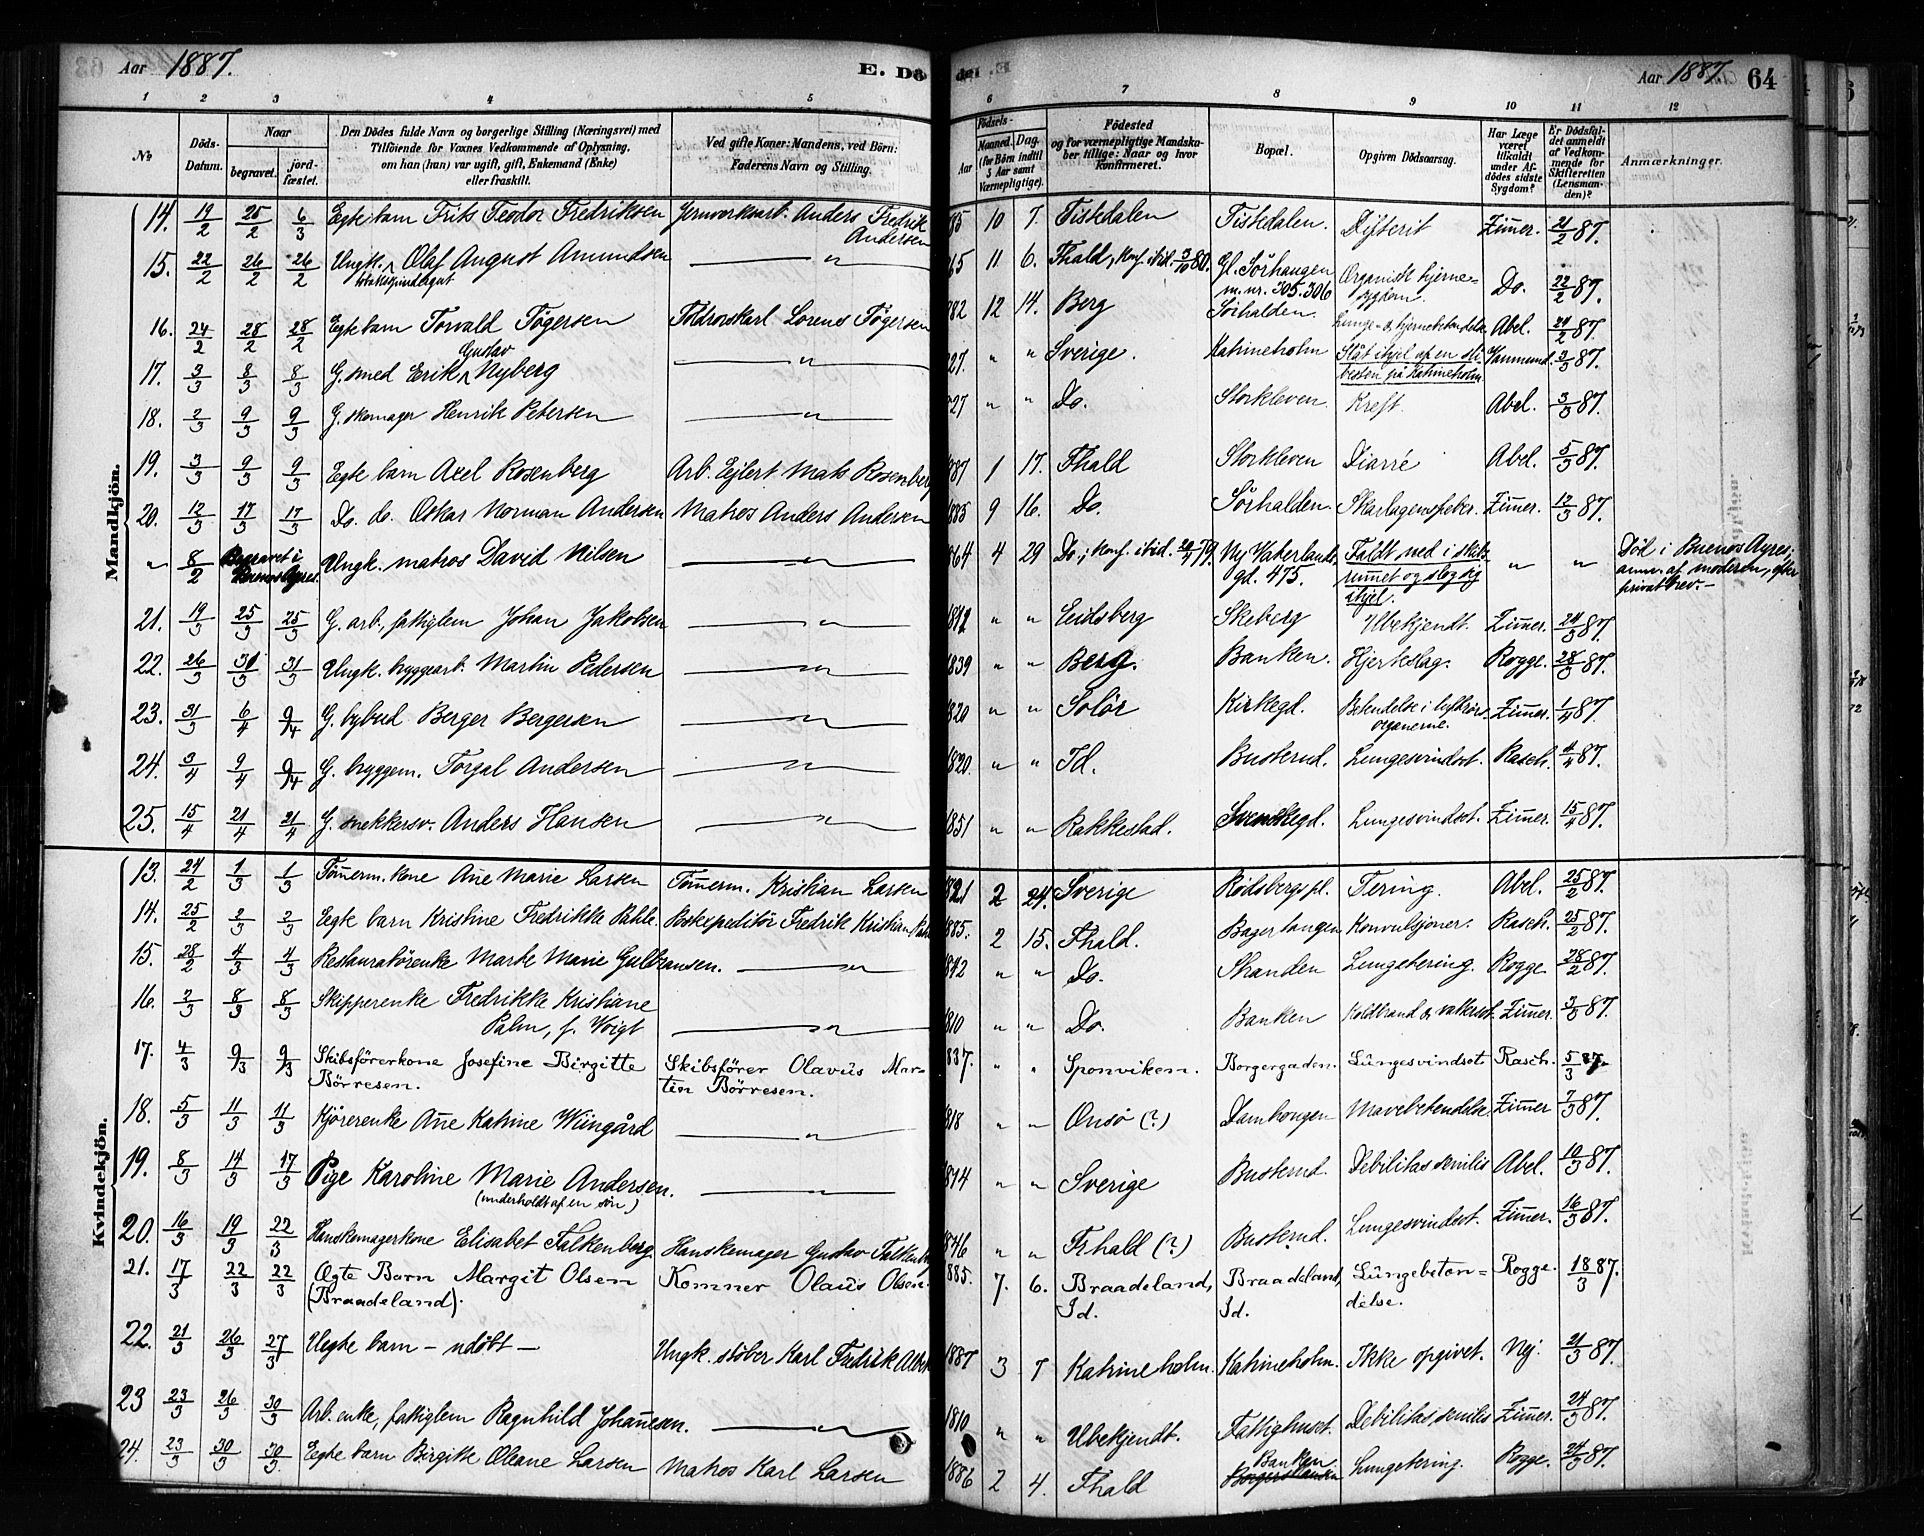 Aar 1887. E. Dö
de. E. Aar 1887. 64
1 2 3 4 5 6 7 8 9 10 11 12
No
Döds-Datum.
Naar
begravet.
jordfæstet.
Den Dödes fulde Navn og borgerlige Stilling (Næringsvei) med
Tilföiende for Voxnes Vedkommende af Oplysning,
om han (hun) var ugift, gift, Enkemand (Enke)
eller fraskilt.
Ved gifte Koner: Mandens, ved Börn:
Faderens Navn og Stilling.
Födsels-
Aar
Maaned. Dag.
(for Börn indtil
5 Aar samt
Værnepligtige).
Födested
og for værnepligtige Mandska-
ber tillige: Naar og hvor
konfirmeret.
Bopæl.
Opgiven Dödsaarsag.
Har Læge
været
tilkaldt
under Af-
dödes sidste
Sygdom?
Er Dödsfal-
det anmeldt
af Vedkom-
mende for
Skifteretten
(Lensman-
den)?
Anmærkninger.
Mandkjön.
14. 19/2 25/2 6/3 Egte barn Frits Teodor Fredriksen Jernverksarb. Anders Fredrik Andersen 85 10 7. Tistedalen Tistedalen. Difterit Zimmer. 21/2 87.
15. 22/2 26/2 26/2 Ungk. tobakspindergut Olaf August Amundsen — " — 65 11 6. Fhald, konf. ibid. 3/10 80. Gl. Sörhaugen m. nr. 305.306 Organisk hjerne-sygdom. Do. 22/2 87.
16. 24/2 28/2 28/2 Egte barn Torvald Tögersen Toldroerskarl Lorens Tögersen 882 12 14. Berg Sörhalden. Lunge- & hjernebetændelse Abel. 24/2 87.
17. 3/3 8/3 8/3 G. smed Erik Gustav Nyberg — " — 827. " " Sverige. Katrineholm Slåt ihjel af en sli-besten på Katrineholm 3/3 87.
18. 2/3 9/3 9/3 G. skomager Henrik Petersen — " — 827 " " Do. Storkleven. Kreft. Abel. 3/3 87.
19. 3/3 9/3 9/3 Egte barn Axel Rosenberg Arb. Ejlert Mats Rosenberg 887 1 17. Fhald Storkleven Diarré Abel. 5/3 87.
20. 12/3 17/3 17/3 Do. do. Oskar Norman Andersen Matros Anders Andersen 1883 9 16. Do. Sörhalden. Skarlagensfeber. Zimmer. 12/3 87.
" 8/2 Begravet i Buenos Ayres. Ungk. matros David Nilsen — " — 864 4 29 Do.; konf. ibid. 20/4 79. Ny Vaterlands-gd. 475. Faldt ned i skibs-rummet og slog sig ihjel. " " Död i Buenos Ayres; anm. af moderen, efter privatbrev.—
21. 19/3 25/3 25/3 G. arb., fattiglem Johan Jakobsen — " — 1812 " " Eidsberg Skeberg Ubekjendt. Zimmer. 24/3 87.
22. 26/3 31/3 31/3 Ungk. bryggearb. Martin Pedersen — " — 1839 " " Berg. Banken. Hjerteslag. Rogge. 28/3 87.
23. 31/3 6/4 9/4 G. bybud Berger Bergersen — " — 1820 " " Solör Kirkegd. Betendelse i luftrörs-organerne. Zimmer. 1/4 87.
24. 3/4 9/4 9/4 G. bryggem. Torgal Andersen — " — 1820. " " Id. Busterud. Lungesvindsot. Rasch. 4/4 87.
25. 15/4 21/4 21/4 G. snekkersv. Anders Hansen — " — 1851 " " Rakkestad. Svenskegd. Lungesvindsot. Zimmer. 15/4 87.
Kvindekjön.
13. 24/2 1/3 1/3 Tömmerm. kone Ane Marie Larsen Tömmerm. Kristian Larsen 1821 2 24. Sverige Rödsbergspl. Tering. Abel. 25/2 87.
14. 25/2 2/3 2/3 Egte barn Kristine Fredrikke Pahle. Postexpeditör Fredrik Kristian 1885. 2 15. Fhald. Bagerhaugen Konvulsjoner. Rasch. 25/2 87.
15. 28/2 4/3 4/3 Restauratörenke Marte Marie Gulbransen. — " — 1812 " " Do. Skanden Lungetering. Rogge. 28/2 87.
16. 2/3 8/3 8/3 Skipperenke Fredrikke Kristiane Palm, f. Voigt — " — 1810 " " Do. Banken Koldbrand & vattersot. Zimmer. 3/3 87.
17. 4/3 9/3 9/3 Skibsförerkone Josefine Birgitte Börresen. Skibsförer Olaviis Martin Börresen. 837. " " Sponviken. Borgergaden. Lungesvindsot Rasch. 5/3 87.
18. 5/3 11/3 11/3 Kjörerenke Ane Katrine Wiingård — " — 818 " " Onsö (?) Damhougen Mavebetendelse. Zimmer 7/3 87.
19. 8/3 14/3 17/3 Pige Karoline Marie Andersen. (underholdt af en sön) — " — 1814 " " Sverige Busterud. Debilitas senilis Abel. 10/3 87.
20. 16/3 19/3 22/3 Hanskemagerkone Elisabet Falkenberg. Hanskemager Gustav Falkenberg 1846 " " Frhald (?) Busterud. Lungesvindsot. Zimmer. 16/3 87.
21. 17/3 22/3 22/3 Ægte Barn Margit Olsen (Braadeland). Komner Olaus Olsen. 885. 7. 6. Braadeland, Id. Braadeland, Id. Lungebeten=delse. Rogge. 18/3 87.
22. 21/3 26/3 27/3 Uegte barn — udöbt — Ungk. stöber Karl Fredrik 1887 3 7 Katrineholm. Katrineholm. Ikke opgivet. Nej. 21/3 87.
23 23/3 26/3 30/3 Arb. enke, fattiglem Ragnhild Johannesen. — " — 1810 " " Ubekjendt. Fattighuset. Debilitas senilis Zimmer. 24/3 87.
24. 23/3 30/3 30/3 Egte barn Birgitte Oleane Larsen Matros Karl Larsen 1886 2 4. Fhald Banken Lungetering. Rogge. 24/3 87.